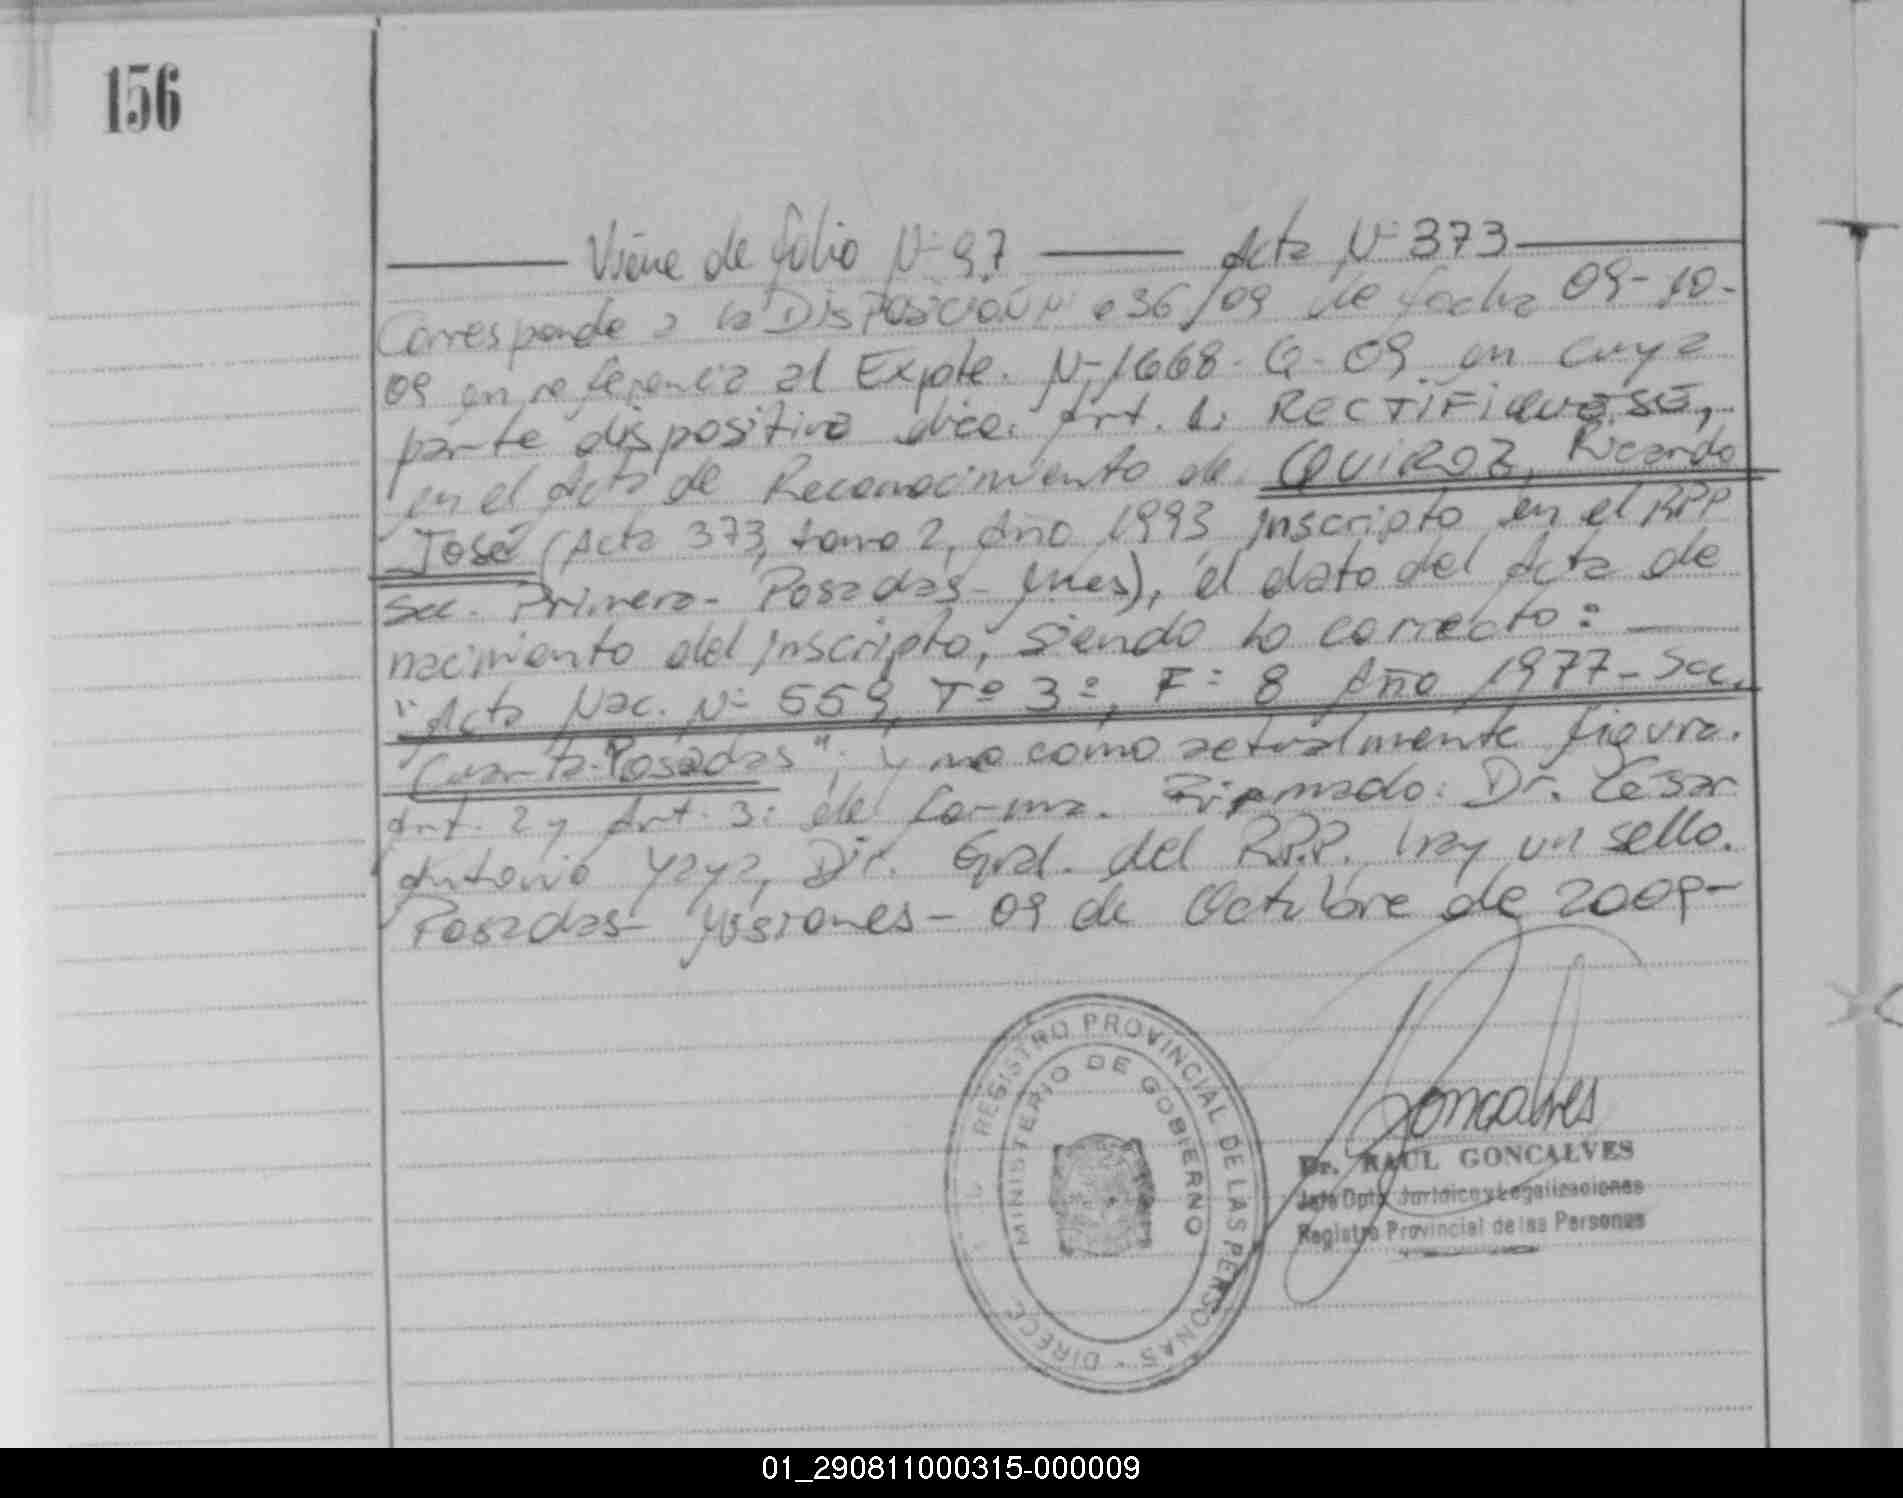 156
Viene de folio Nº 97 Acta Nº 373
Corresponde a la DISPOSICIÓN Nº 036/09 de fecha 09-10-
09 en referencia al Expte. Nº 1668-Q-09 en cuya
parte dispositiva dice: Art. 1: RECTIFIQUESE,
en el Acta de Reconocimiento de QUIROZ, Ricardo
José (Acta 373, tomo 2, Año 1993 inscripto en el RPP
Sec. Primera- Posadas- Mnes), el dato del Acta de
nacimiento del inscripto, siendo lo correcto:
"Acta Nac. Nº 559, Tº 3º, Fº 8 Año 1977- Sec.
Cuarta-Posadas"; y no como actualmente figura.
Art. 2 y Art. 3: de forma. Firmado: Dr. César
Antonio Yaya, Dir. Gral. del R.P.P. hay un sello.
Posadas- Misiones- 09 de Octubre de 2009-
REGISTRO PROVINCIAL DE LAS PERSONAS
MINISTERIO DE GOBIERNO
Goncalves
Dr. RAUL GONCALVES
Jefe Dpto. Jurídico y Legalizaciones
Registro Provincial de las Personas
01_290811000315-000009